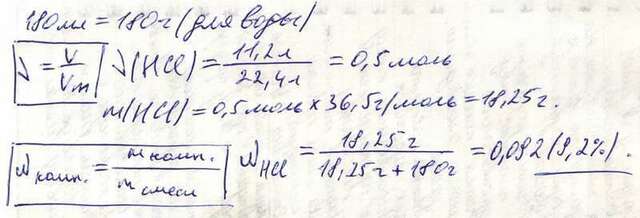 180мл = 180г (для воды)
ν = V/Vm ν(HCl) = 11,2л/22,4л = 0,5 моль
m(HCl) = 0,5 моль x 36,5г/моль = 18,25г.
Wкомп. = mкомп./mсмеси WHCl = 18,25г/18,25г+180г = 0,092 (9,2%).